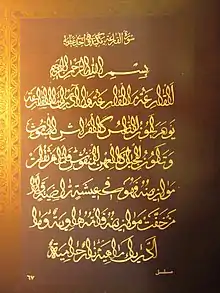 سورة القارعة مكية
بسم الله الرحمن الرحيم
القارعة ما القارعة وما أدراك ما القارعة
يوم يكون الناس كالفراش المبثوث
وتكون الجبال كالعهن المنفوش فأما من ثقلت
موازينه فهو في عيشة راضية وأما
من خفت موازينه فأمه هاوية وما
أدراك ما هيه نار حامية
٦٧